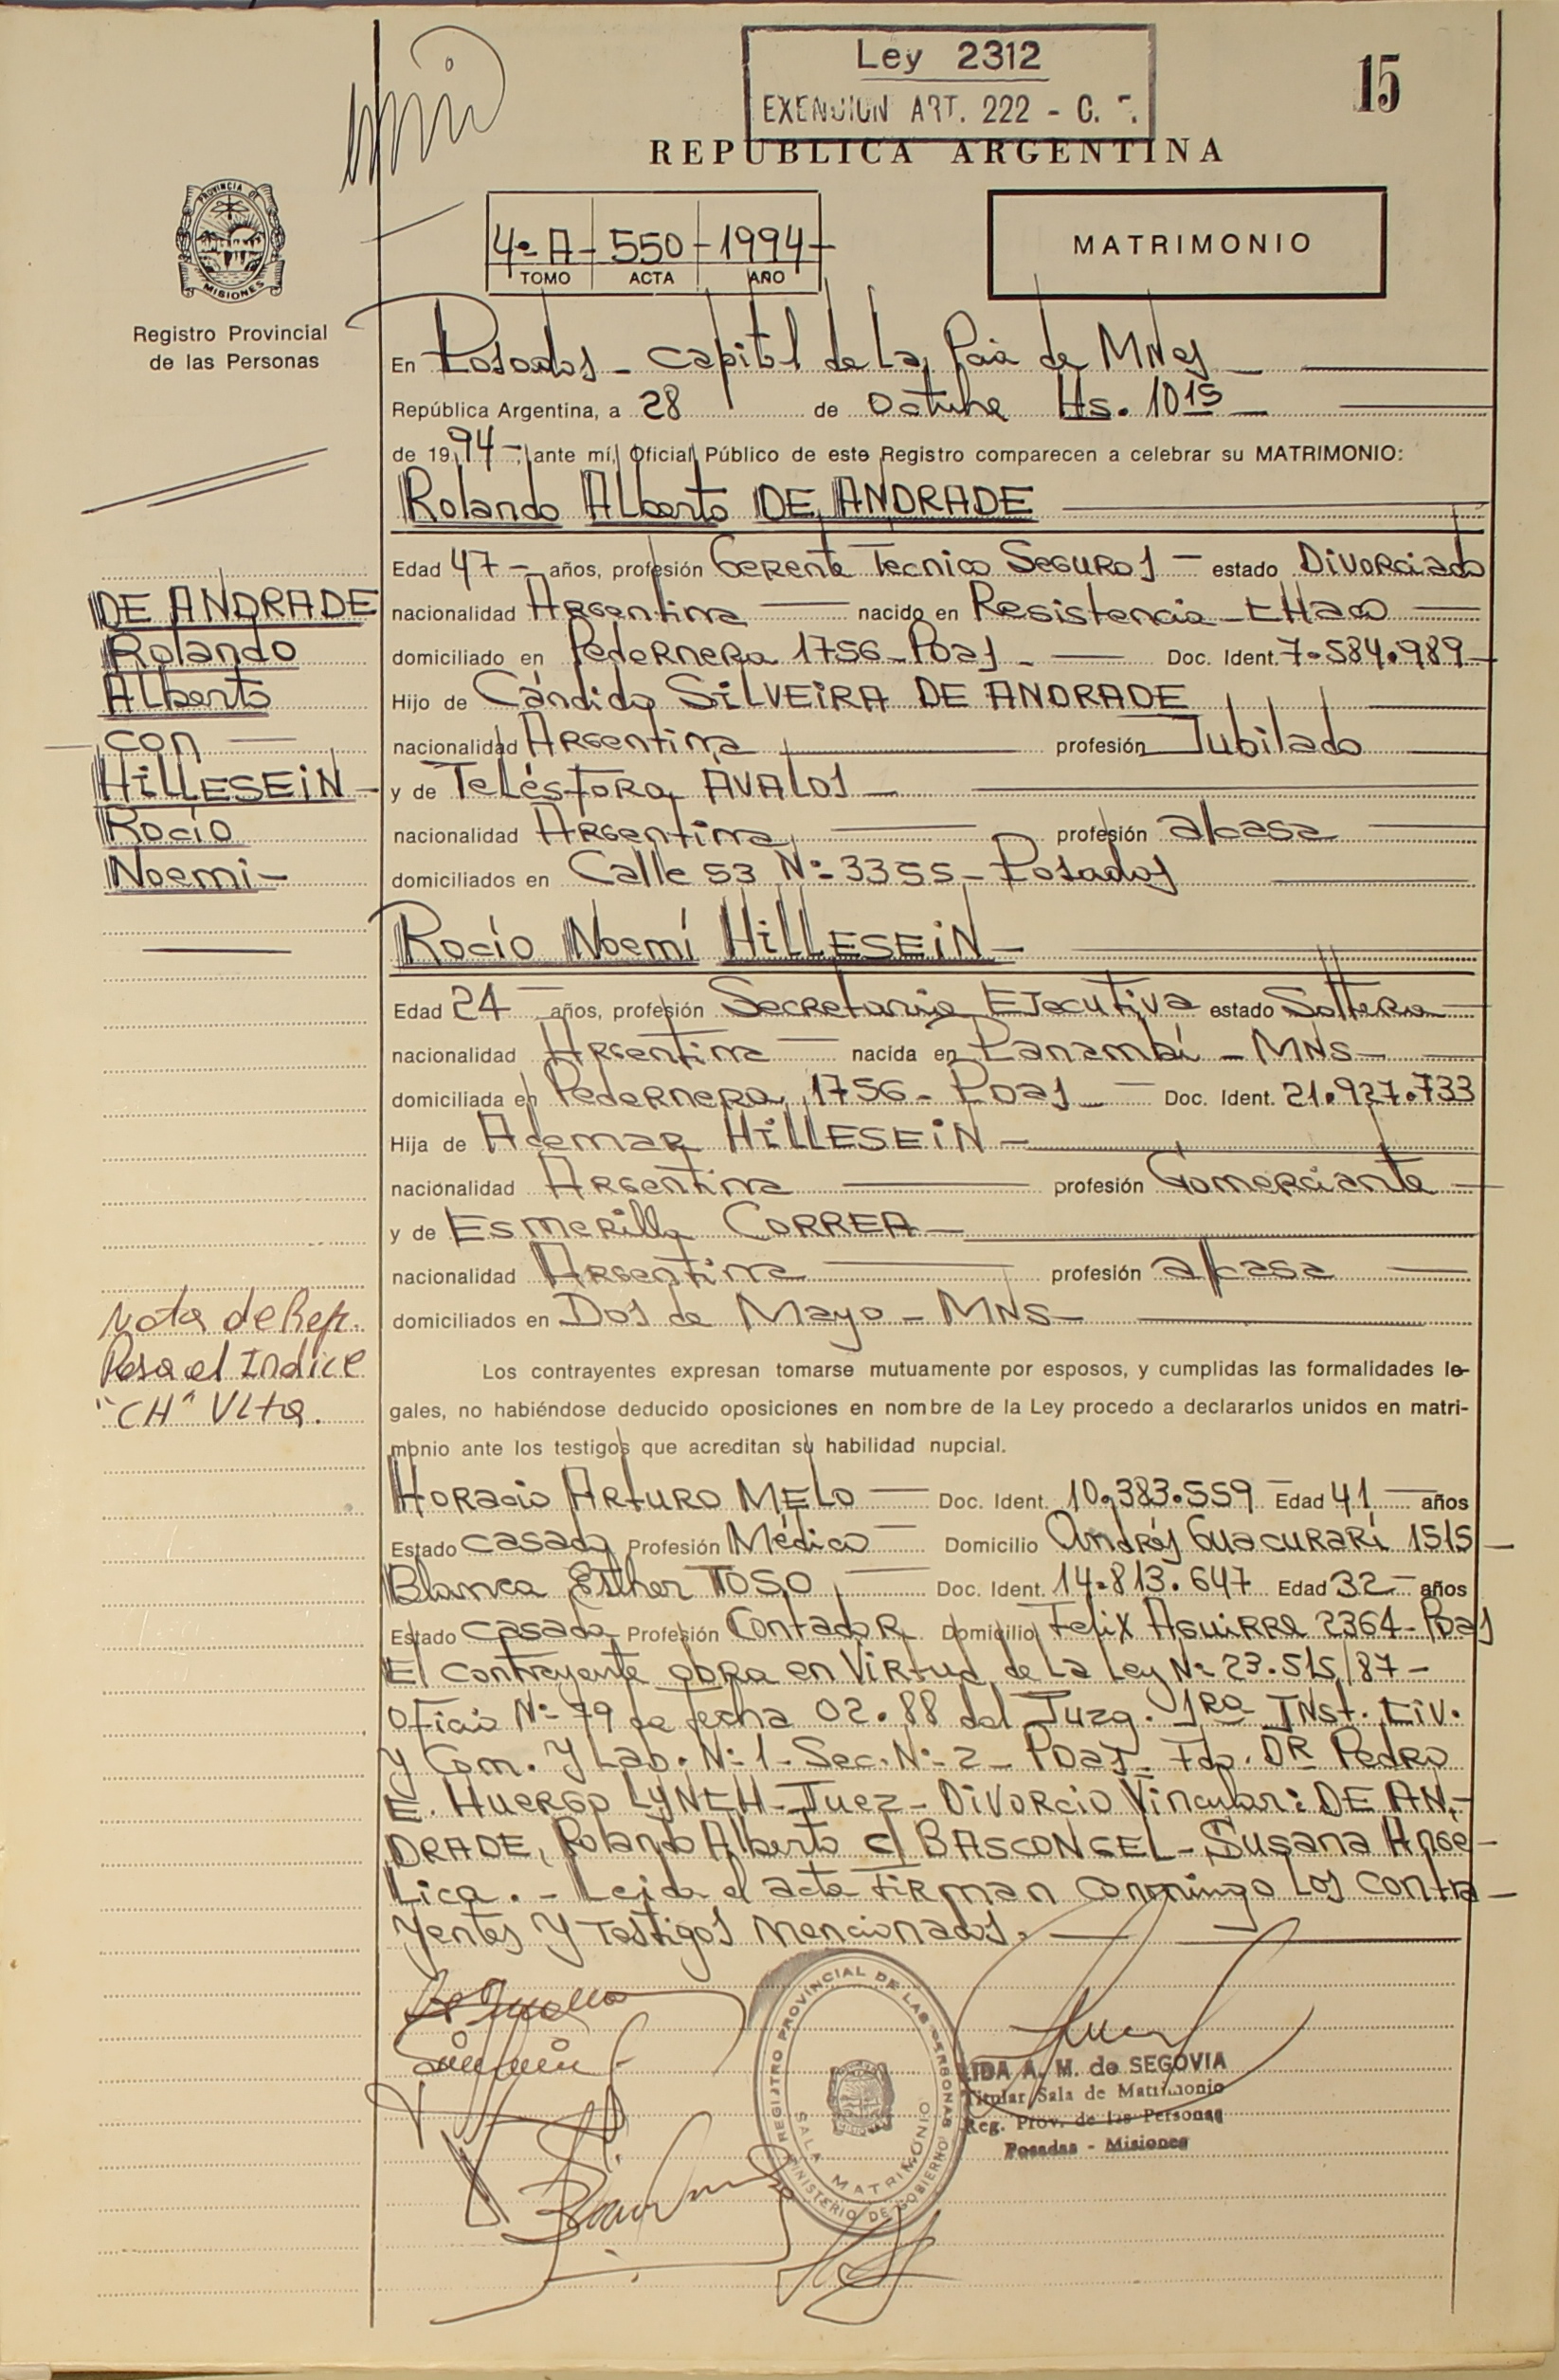 Ley 2312
EXENCION ART. 222 - C.
15
REPUBLICA ARGENTINA
PROVINCIA DE
MISIONES
Registro Provincial
de las Personas
4º A - 550 - 1994 -
TOMO ACTA AÑO
MATRIMONIO
En Posadas - Capital de La Pcia de MNes
República Argentina, a 28 de Octubre Hs. 10 15
de 1994 -, ante mí, Oficial Público de este Registro comparecen a celebrar su MATRIMONIO:
Rolando Alberto DE ANDRADE
Edad 47 - años, profesión Gerente Tecnico Seguros - estado Divorciado
nacionalidad Argentina nacido en Resistencia - CHaco
domiciliado en Pedernera 1756 - Pdas - Doc. Ident. 7.584.989 -
Hijo de Cándido SILVEIRA DE ANDRADE
nacionalidad Argentina profesión Jubilado
y de Telésfora ÁVALOS -
nacionalidad Argentina profesión a/casa
domiciliados en Calle 53 Nº 3355 - Posadas
DE ANDRADE
Rolando
Alberto
- con -
HILLESEIN -
Rocío
Noemi -
Rocío Noemí HILLESEIN -
Edad 24 años, profesión Secretaria Ejecutiva estado Soltera
nacionalidad Argentina nacida en Panambí - MNS -
domiciliada en Pedernera 1756 - Pdas - Doc. Ident. 21.927.733
Hija de Ademar HILLESEIN -
nacionalidad Argentina profesión Comerciante
y de Esmerilla CORREA -
nacionalidad Argentina profesión a/casa
domiciliados en Dos de Mayo - MNS -
Nota de Ref.
Pasa al Indice
"CH" Vlta.
Los contrayentes expresan tomarse mutuamente por esposos, y cumplidas las formalidades le-
gales, no habiéndose deducido oposiciones en nombre de la Ley procedo a declararlos unidos en matri-
monio ante los testigos que acreditan su habilidad nupcial.
Horacio Arturo MELO - Doc. Ident. 10.383.559 - Edad 41 - años
Estado casado Profesión Médico - Domicilio Andrés Guacurarí 1515 -
Blanca Esther TOSO - Doc. Ident. 14.813.647 Edad 32 - años
Estado casada Profesión Contador Domicilio Felix Aguirre 2364 - Pdas
El contrayente obra en Virtud de La Ley Nº 23.515/87 -
Oficio Nº 79 de fecha 02.88 del Juzg. 1ra Inst. Civ.
y Com. y Lab. Nº 1 - Sec. Nº 2 - Pdas - Fdo. DR Pedro
E. HUERGO LYNCH - Juez - Divorcio Vincular: DE AN-
DRADE, Rolando Alberto c/ BASCONCEL - Susana Angé-
Lica. - Leida el acta Firman conmigo Los Contra-
yentes y Testigos mencionados. -
REGISTRO PROVINCIAL DE LAS PERSONAS
SALA MATRIMONIO
MINISTERIO DE GOBIERNO
LIDA A. M. de SEGOVIA
Titular Sala de Matrimonio
Reg. Prov. de las Personas
Posadas - Misiones